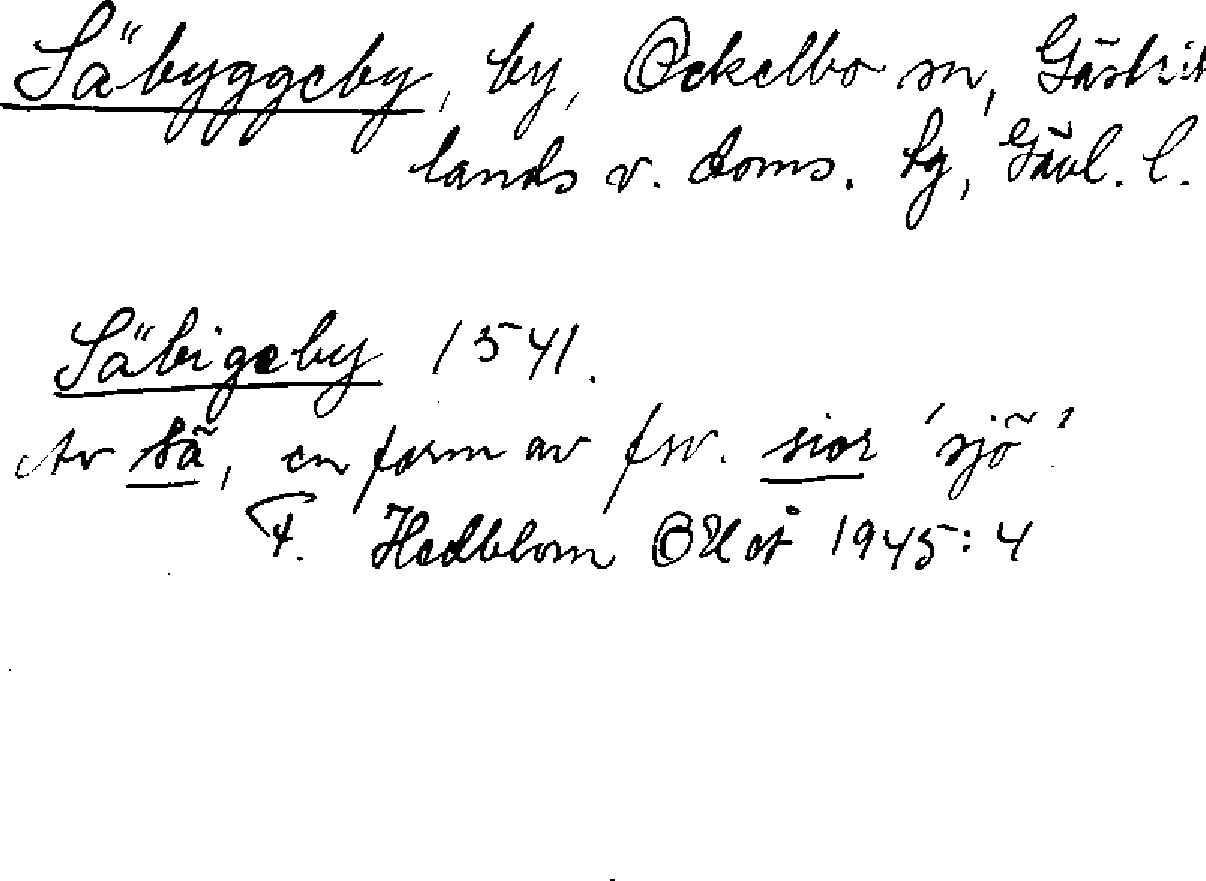 Säbyggeby, by, Ockelbo sn, Gästrik
lands v. doms. tg, Gävl. l.
Säbigeby 1541.
Av sä, en form av fsv. sior 'sjö'.
F. Hedblom OUÅ 1945:4